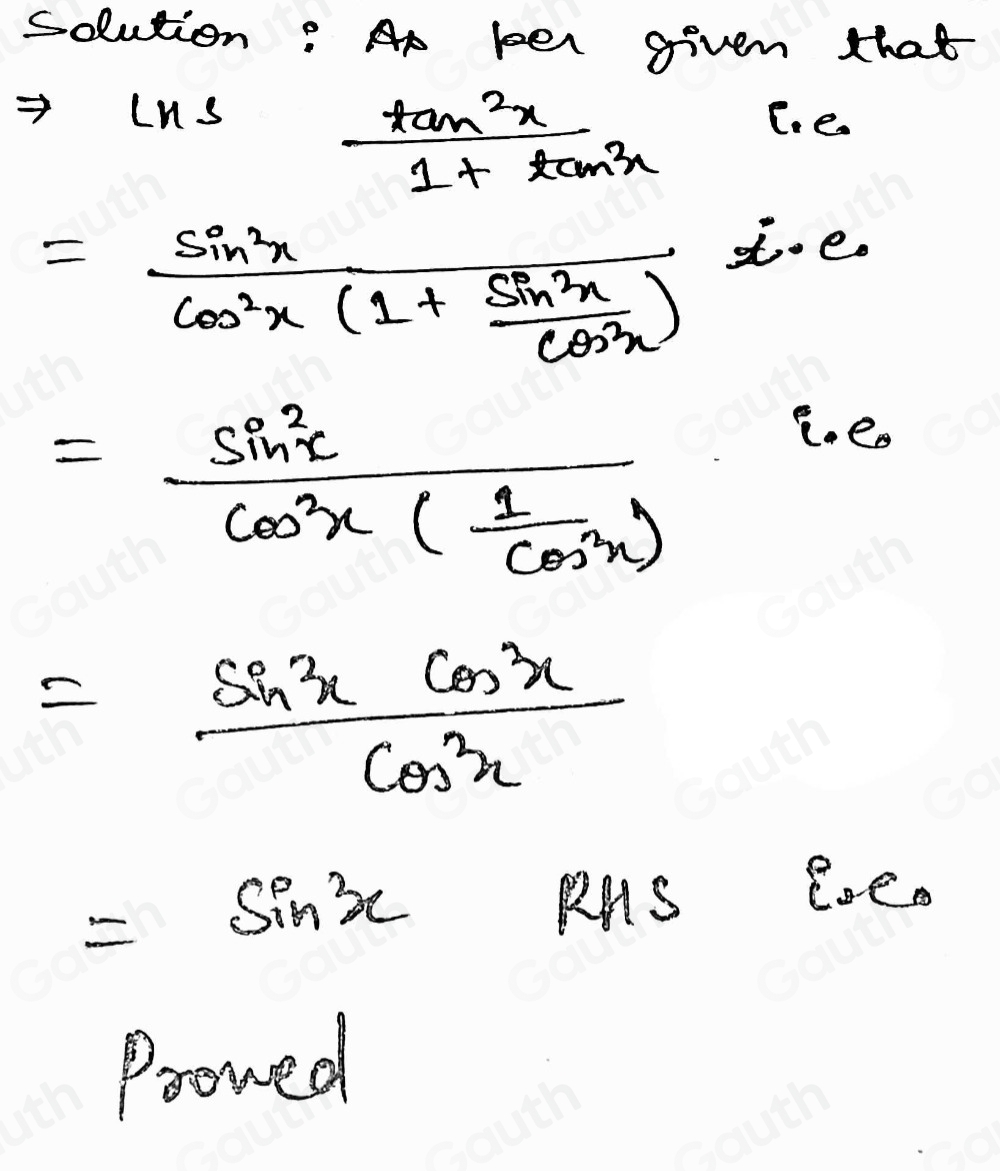 Solution : As per given that
⇒ LHS tan²x / 1 + tan²x i.e.
= sin²x / cos²x (1 + sin²x / cos²x) i.e.
= sin²x / cos²x (1 / cos²x) i.e.
= sin²x cos²x / cos²x
= sin²x RHS i.e.
Proved